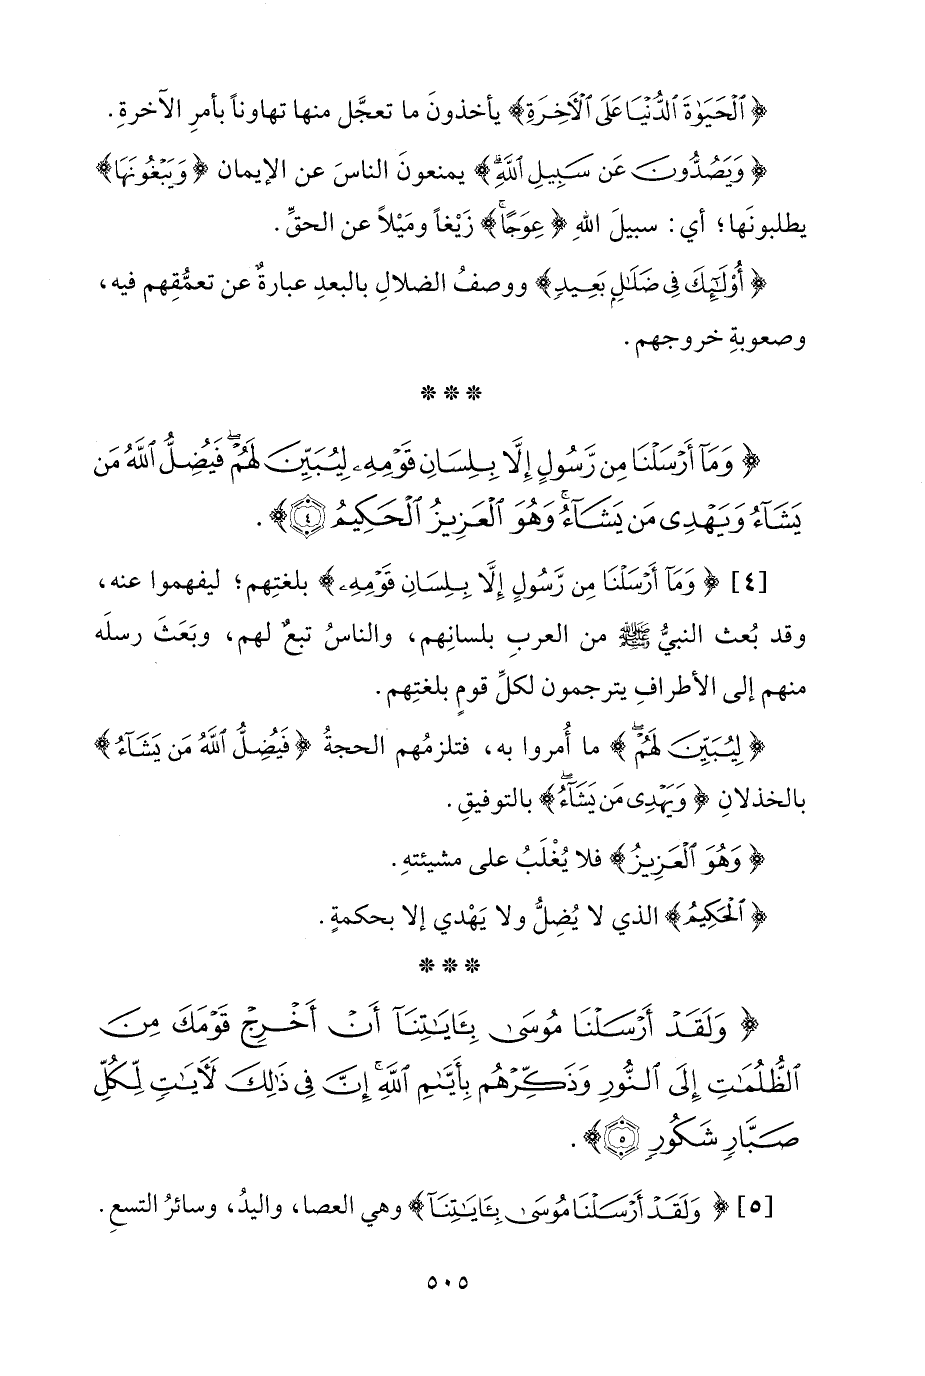 ﴿ٱلْحَيَوٰةَ ٱلدُّنْيَا عَلَى ٱلْأَخِرَةِ﴾ يأخذونَ ما تعجَّل منها تهاوناً بأمرِ الآخرةِ.
﴿وَيَصُدُّونَ عَن سَبِيلِ ٱللَّهِۗ﴾ يمنعونَ الناسَ عن الإيمان ﴿وَيَبْغُونَهَا﴾
يطلبونَها؛ أي: سبيلَ اللهِ ﴿عِوَجًاۚ﴾ زَيْغاً ومَيْلاً عن الحقِّ.
﴿أُوْلَٰٓئِكَ فِى ضَلَٰلٍۭ بَعِيدٍ﴾ ووصفُ الضلالِ بالبعدِ عبارةٌ عن تعمُّقِهم فيه،
وصعوبةِ خروجهم.
***
﴿وَمَآ أَرْسَلْنَا مِن رَّسُولٍ إِلَّا بِلِسَانِ قَوْمِهِۦ لِيُبَيِّنَ لَهُمْۖ فَيُضِلُّ ٱللَّهُ مَن
يَشَآءُ وَيَهْدِى مَن يَشَآءُۚ وَهُوَ ٱلْعَزِيزُ ٱلْحَكِيمُ ٤﴾.
[٤] ﴿وَمَآ أَرْسَلْنَا مِن رَّسُولٍ إِلَّا بِلِسَانِ قَوْمِهِۦ﴾ بلغتِهم؛ ليفهموا عنه،
وقد بُعث النبيُّ ﷺ من العربِ بلسانِهم، والناسُ تبعٌ لهم، وبَعَثَ رسلَه
منهم إلى الأطرافِ يترجمون لكلِّ قومٍ بلغتِهم.
﴿لِيُبَيِّنَ لَهُمْۖ﴾ ما أُمروا به، فتلزمُهم الحجةُ ﴿فَيُضِلُّ ٱللَّهُ مَن يَشَآءُ﴾
بالخذلانِ ﴿وَيَهْدِى مَن يَشَآءُۖ﴾ بالتوفيقِ.
﴿وَهُوَ ٱلْعَزِيزُ﴾ فلا يُغْلَبُ على مشيئتهِ.
﴿ٱلْحَكِيمُ﴾ الذي لا يُضِلُّ ولا يَهْدي إلا بحكمةٍ.
***
﴿وَلَقَدْ أَرْسَلْنَا مُوسَىٰ بِـَٔايَٰتِنَآ أَنْ أَخْرِجْ قَوْمَكَ مِنَ
ٱلظُّلُمَٰتِ إِلَى ٱلنُّورِ وَذَكِّرْهُم بِأَيَّىٰمِ ٱللَّهِۚ إِنَّ فِى ذَٰلِكَ لَأٓيَٰتٍ لِّكُلِّ
صَبَّارٍ شَكُورٍ ٥﴾.
[٥] ﴿وَلَقَدْ أَرْسَلْنَا مُوسَىٰ بِـَٔايَٰتِنَآ﴾ وهي العصا، واليدُ، وسائرُ التسعِ.
٥٠٥